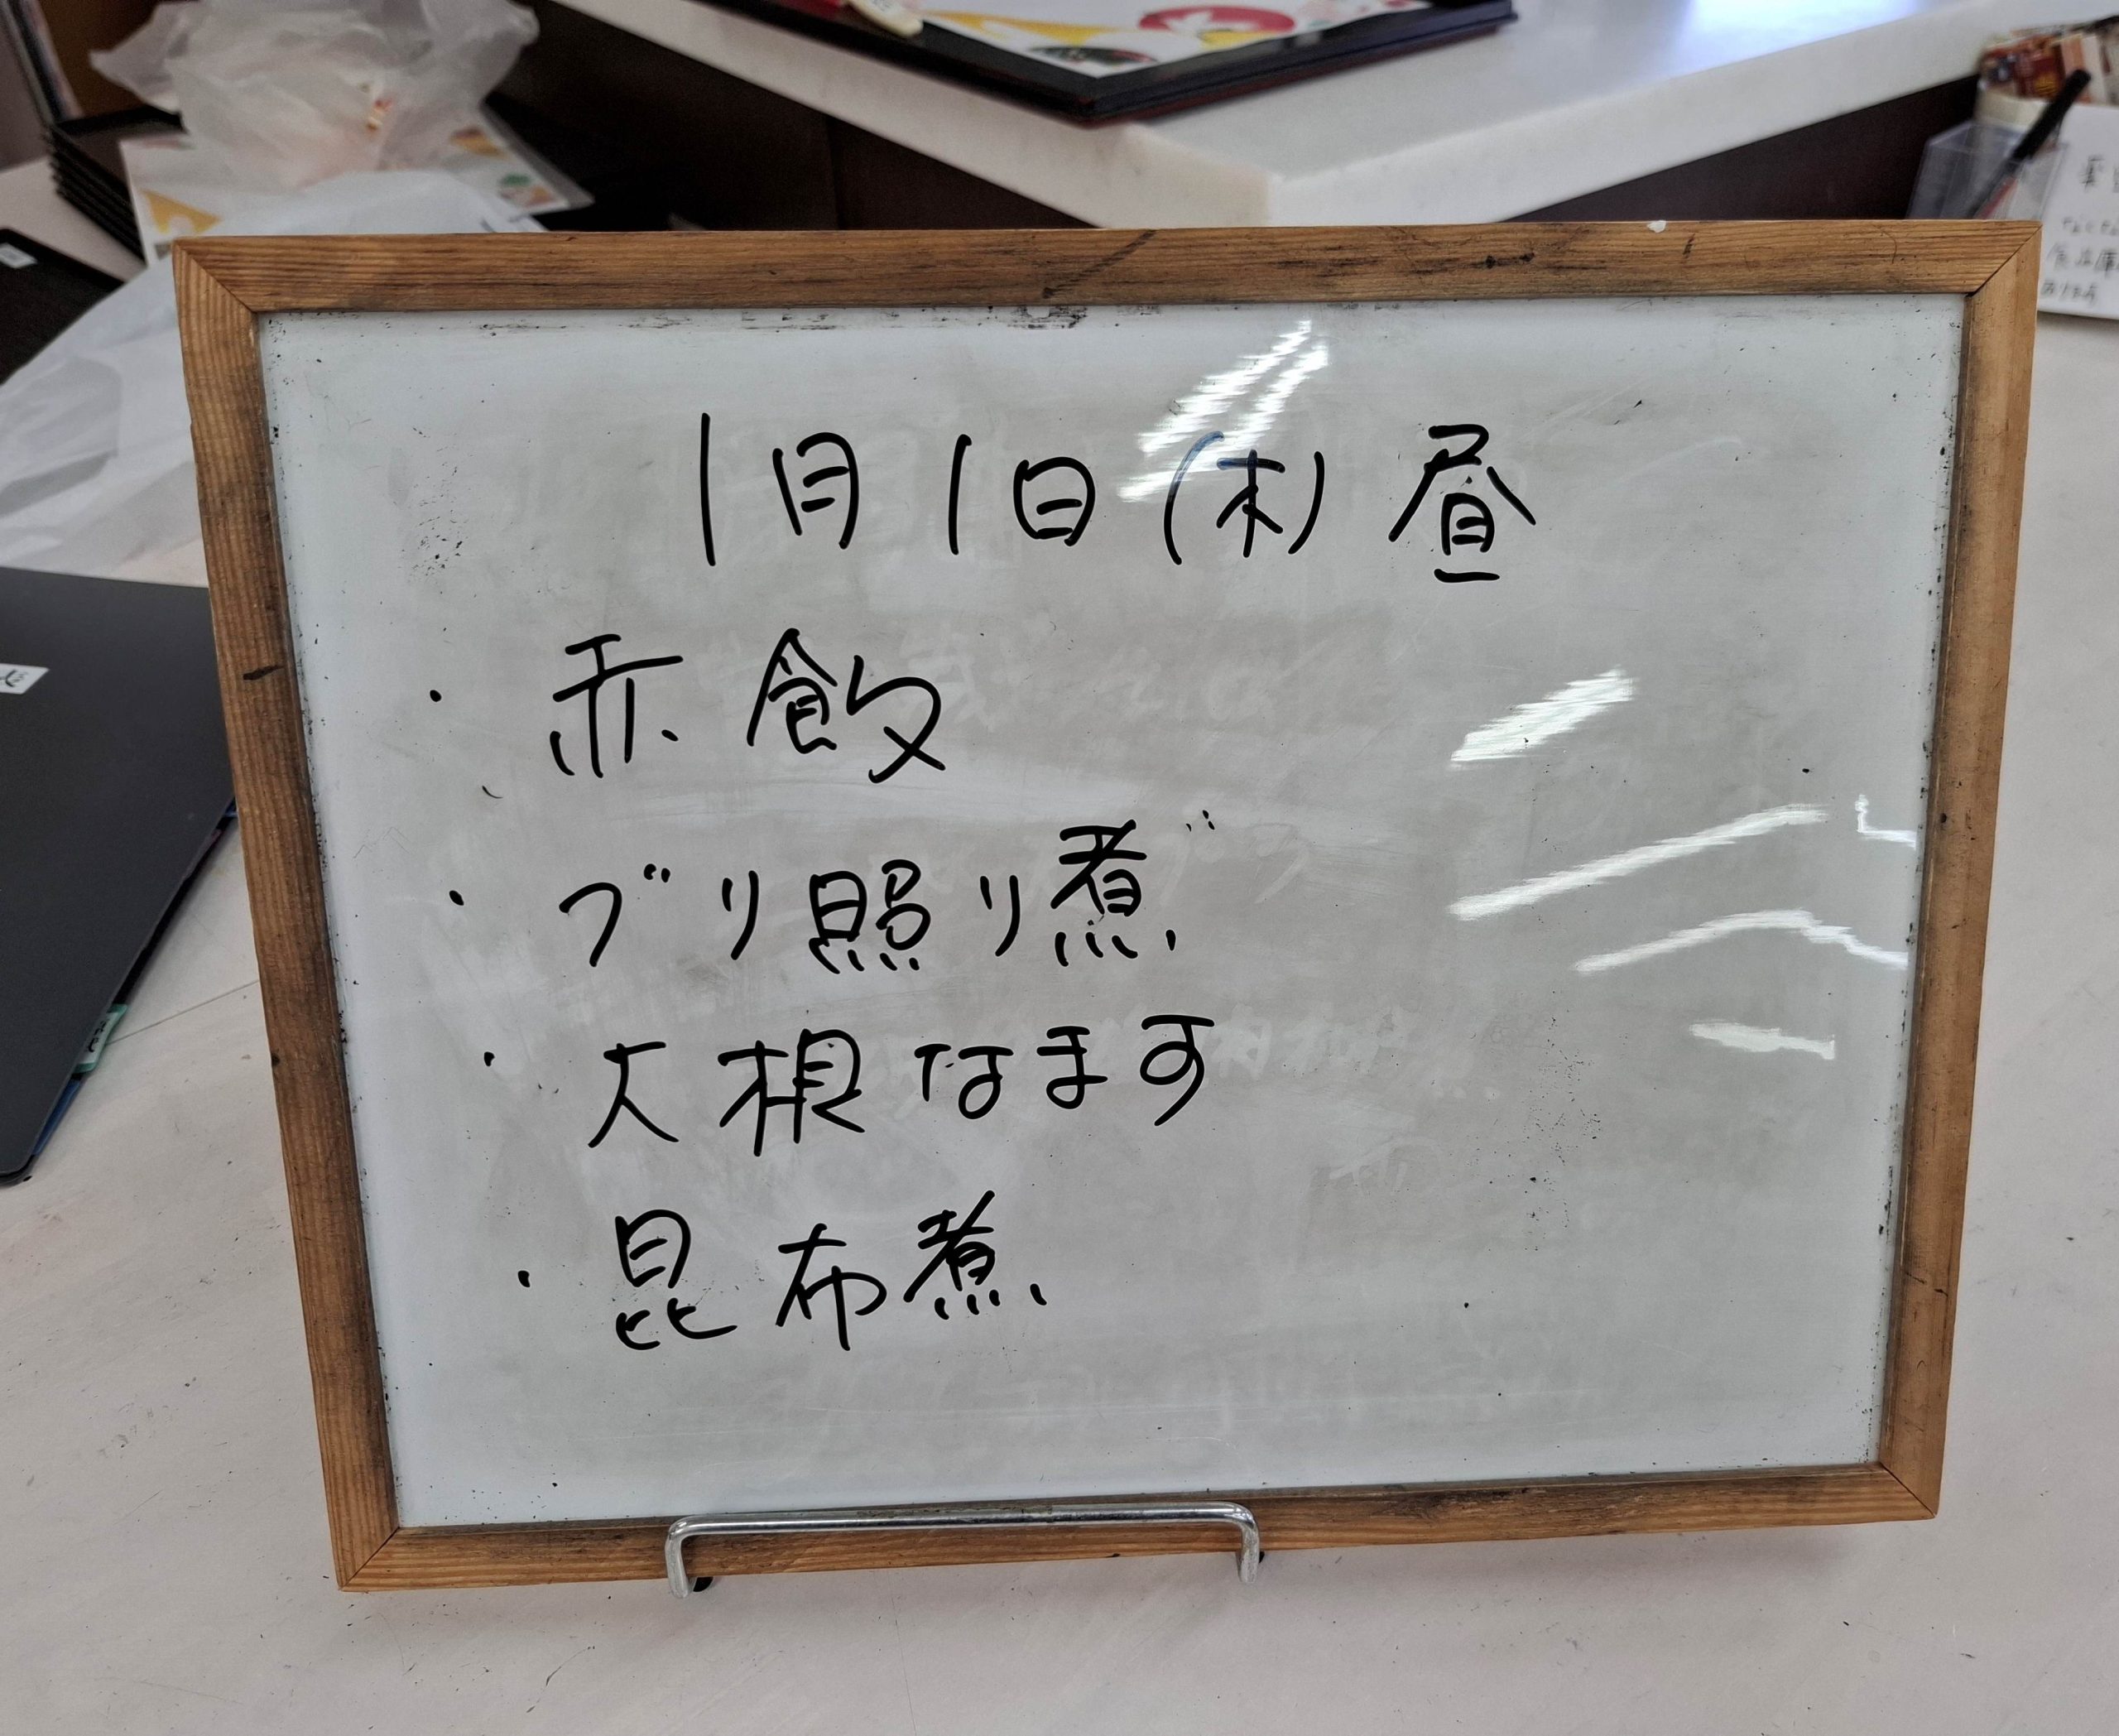 1月1日(木)昼
・赤飯
・ブリ照り煮
・大根なます
・昆布煮